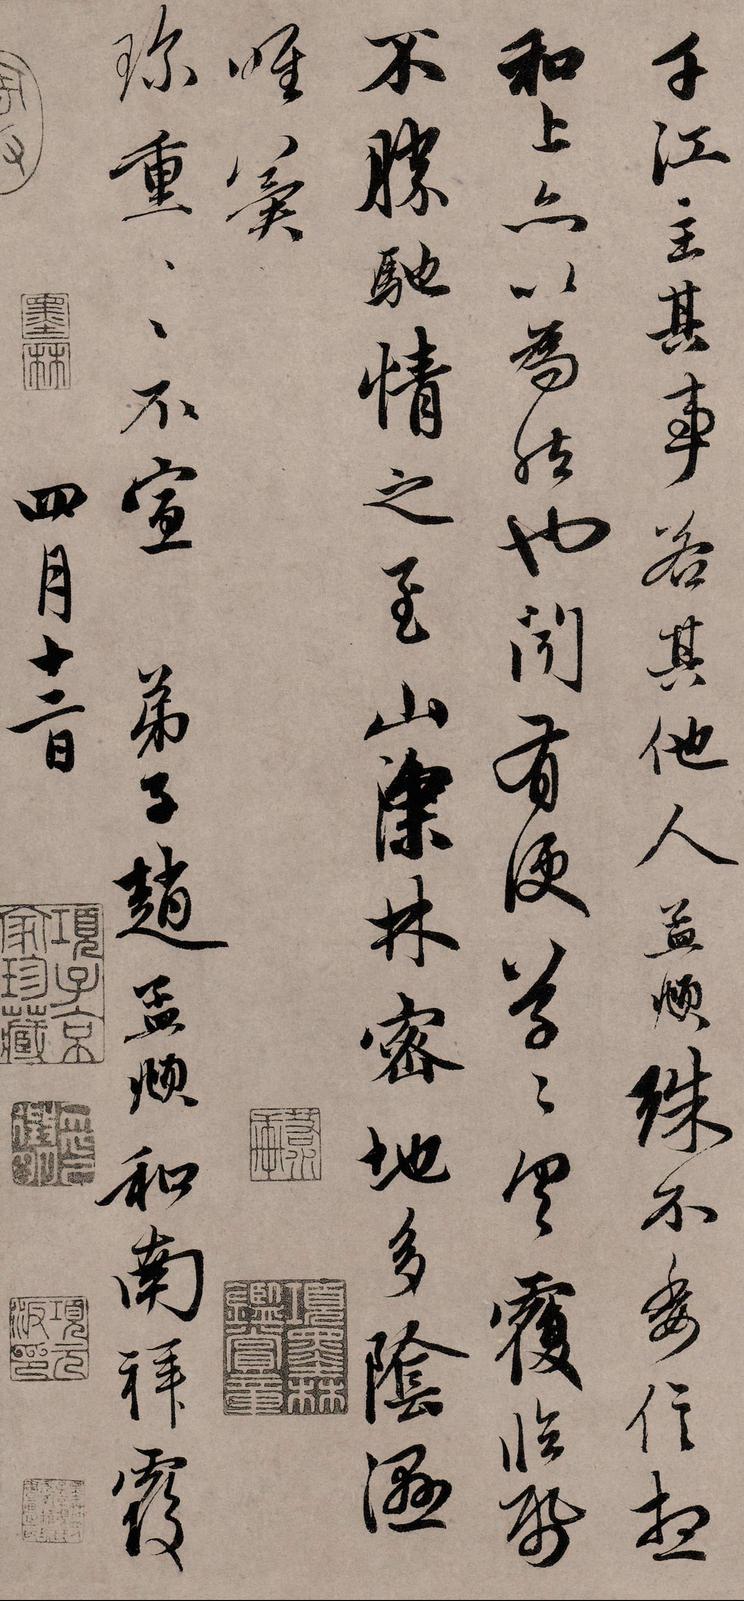 千江主其事若其他人孟頫殊不委信想
和上亦以為然也聞有便草草具覆臨紙
不勝馳情之至山深林密地多陰濕
唯冀
珍重珍重不宣 弟子趙孟頫和南拜覆
四月十二日
墨林
項子京家珍藏
項墨林鑑賞章